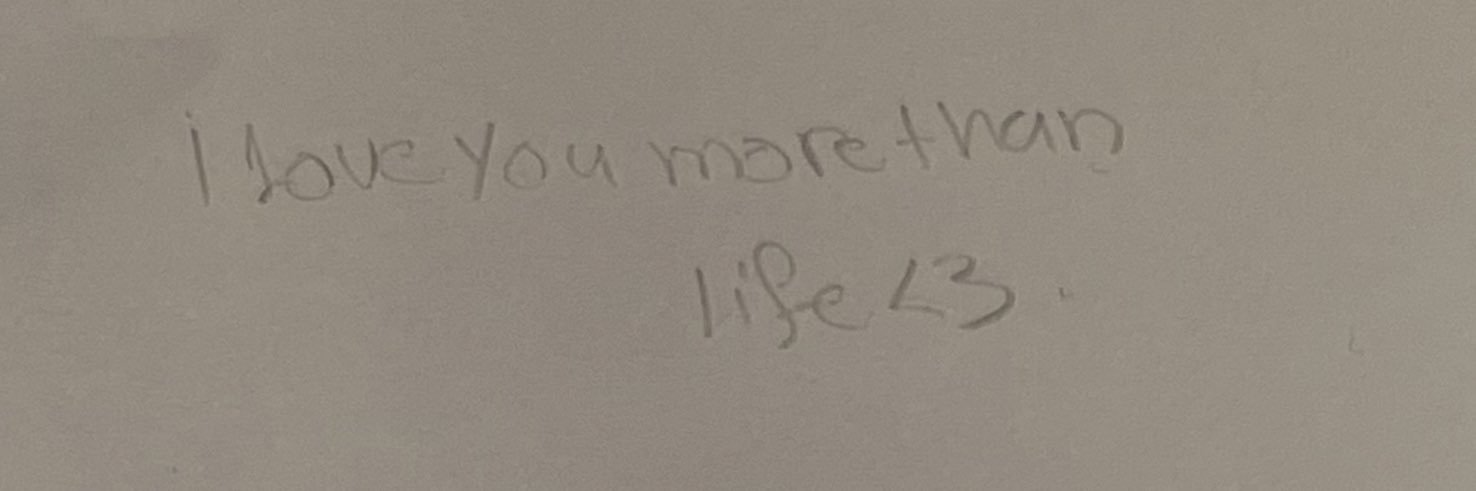 i love you more than
life <3.